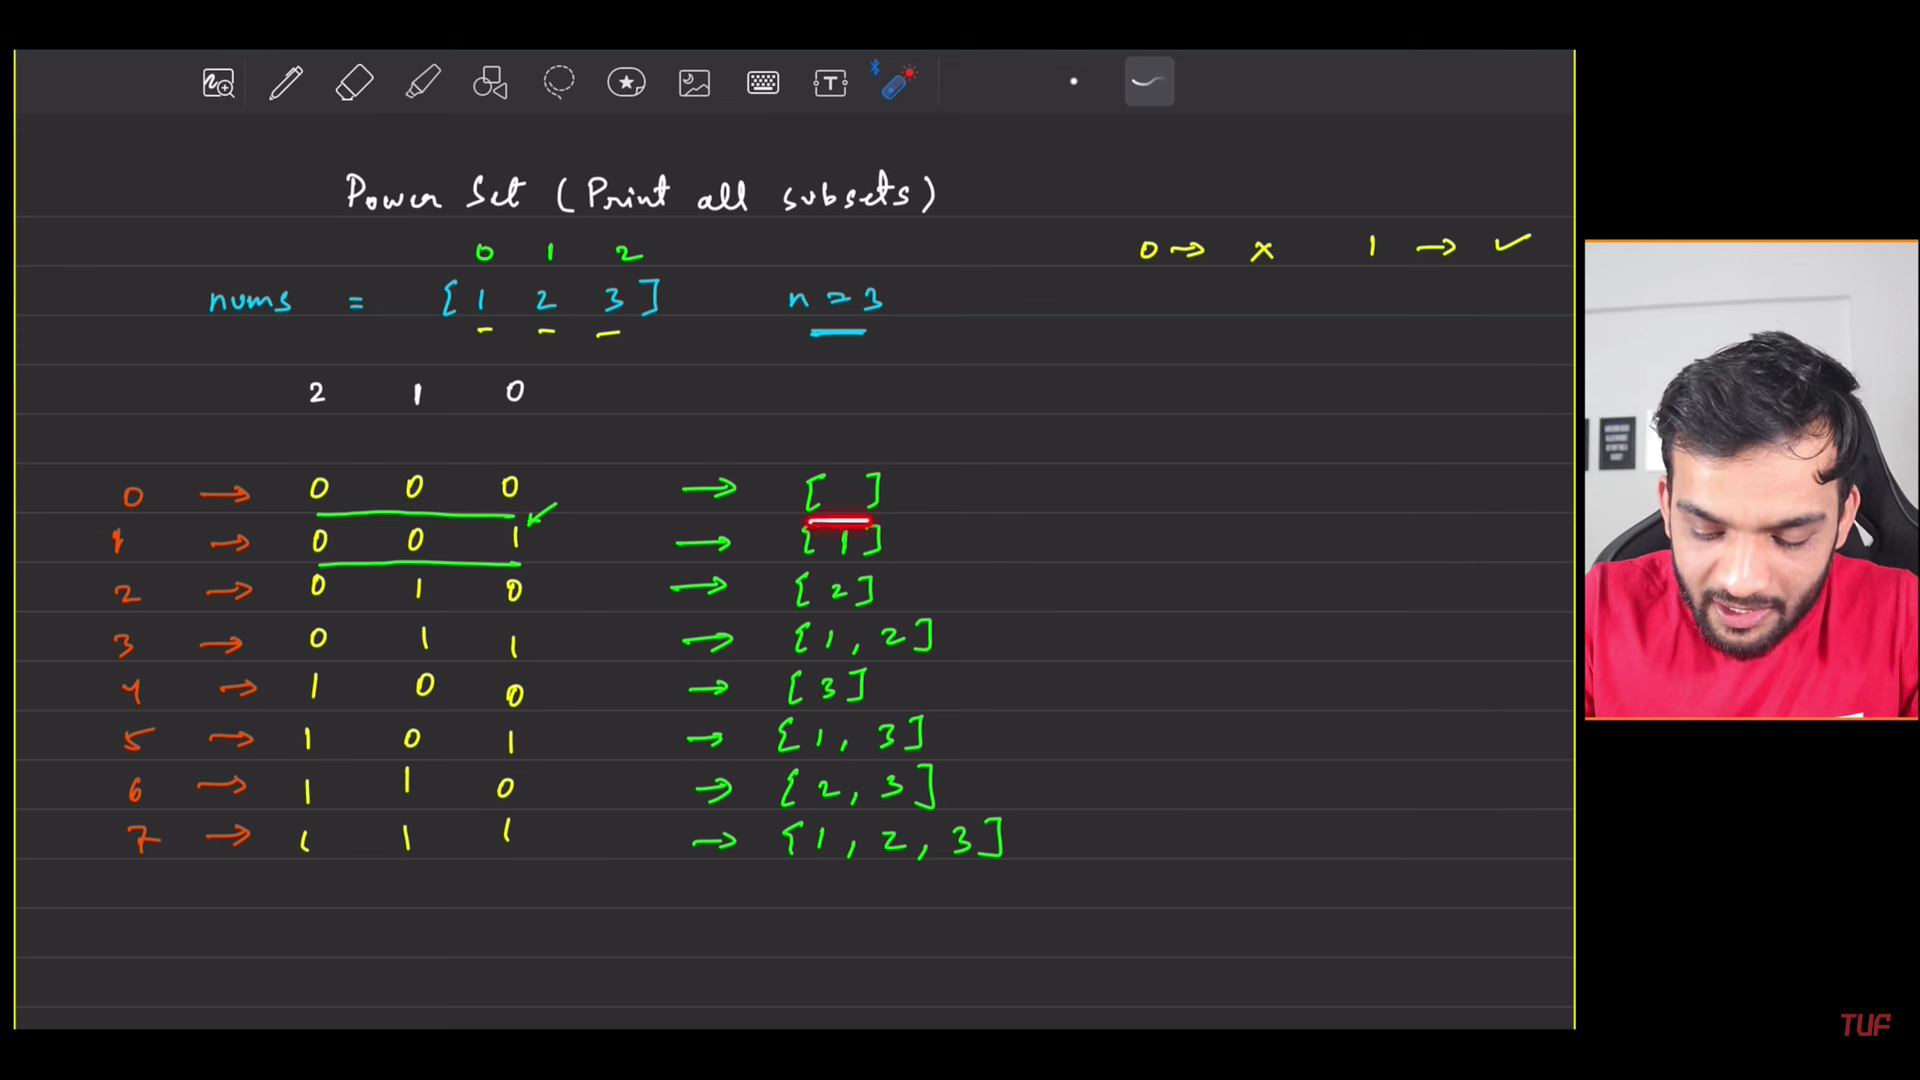 Power Set (Print all subsets)
0 1 2
0 → x 1 → ✓
nums = [ 1 2 3 ] n = 3
2 1 0
0 → 0 0 0 → [ ]
1 → 0 0 1 → [ 1 ]
2 → 0 1 0 → [ 2 ]
3 → 0 1 1 → [ 1 , 2 ]
4 → 1 0 0 → [ 3 ]
5 → 1 0 1 → [ 1 , 3 ]
6 → 1 1 0 → [ 2 , 3 ]
7 → 1 1 1 → [ 1 , 2 , 3 ]
TUF